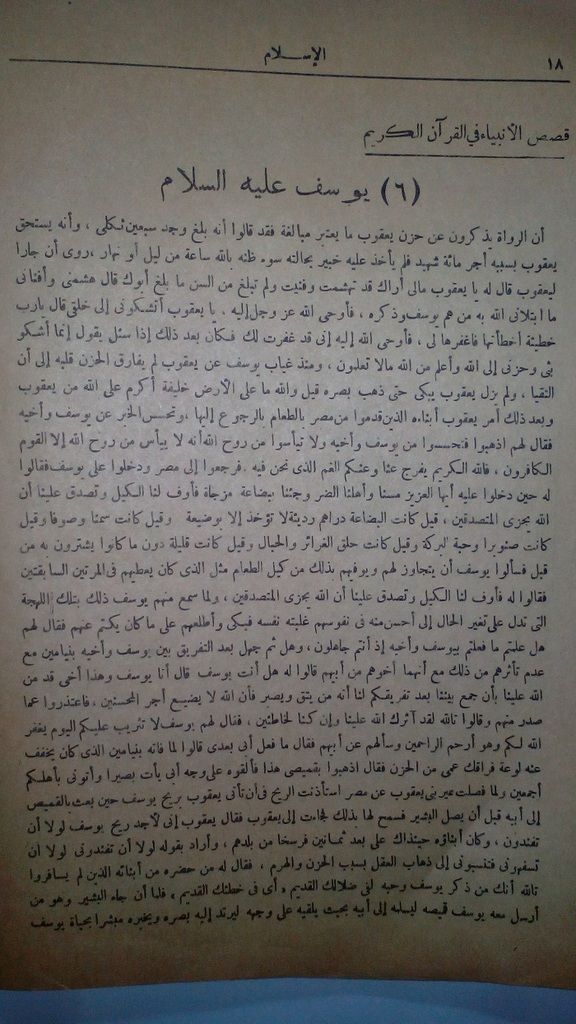 ١٨
الإسلام
قصص الأنبياء في القرآن الكريم
(٦) يوسف عليه السلام
أن الرواة يذكرون عن حزن يعقوب ما يعتبر مبالغة فقد قالوا أنه بلغ وجد سبعين ثكلى ، وأنه يستحق
يعقوب بسببه أجر مائة شهيد فلم يأخذ عليه خبير بحالته سوء ظنه بالله ساعة من ليل أو نهار ، روى أن جارا
ليعقوب قال له يا يعقوب مالى أراك قد تهشمت وفنيت ولم تبلغ من السن ما بلغ أبوك قال هشمنى وأفنانى
ما ابتلانى الله به من هم يوسف وذكره ، فأوحى الله عز وجل إليه . يا يعقوب أتشكونى إلى خلقى قال يارب
خطيئة أخطأتها فاغفرها لى ، فأوحى الله إليه إنى قد غفرت لك فكان بعد ذلك إذا سئل يقول إنما أشكو
بثى وحزنى إلى الله وأعلم من الله مالا تعلمون ، ومنذ غياب يوسف عن يعقوب لم يفارق الحزن قلبه إلى أن
التقيا ، ولم يزل يعقوب يبكى حتى ذهب بصره قيل والله ما على الأرض خليفة أكرم على الله من يعقوب
وبعد ذلك أمر يعقوب أبناءه الذين قدموا من مصر بالطعام بالرجوع إليها ، وتحسس الخبر عن يوسف وأخيه
فقال لهم اذهبوا فتحسسوا من يوسف وأخيه ولا تيأسوا من روح الله أنه لا ييأس من روح الله إلا القوم
الكافرون ، فالله الكريم يفرج عنا وعنكم الغم الذى نحن فيه . فرجعوا إلى مصر ودخلوا على يوسف فقالوا
له حين دخلوا عليه أيها العزيز مسنا وأهلنا الضر وجئنا ببضاعة مزجاة فأوف لنا الكيل وتصدق علينا أن
الله يجزى المتصدقين ، قيل كانت البضاعة دراهم رديئة لا تؤخذ إلا بوضيعة وقيل كانت سمنا وصوفا وقيل
كانت صنوبرا وحبة البركة وقيل كانت حلق الغرائر والحبال وقيل كانت قليلة دون ما كانوا يشترون به من
قبل فسألوا يوسف أن يتجاوز لهم ويوفهم بذلك من كيل الطعام مثل الذى كان يعطيهم فى المرتين السابقتين
فقالوا له فأوف لنا الكيل وتصدق علينا أن الله يجزى المتصدقين ، ولما سمع منهم يوسف ذلك بتلك اللهجة
التى تدل على تغير الحال إلى أحسن منه فى نفوسهم غلبته نفسه فبكى وأطلعهم على ما كان يكتم عنهم فقال لهم
هل علمتم ما فعلتم بيوسف وأخيه إذ أنتم جاهلون ، وهل ثم جهل بعد التفريق بين يوسف وأخيه بنيامين مع
عدم تأثرهم من ذلك مع أنهما أخوهم من أبيهم قالوا له هل أنت يوسف قال أنا يوسف وهذا أخى قد من
الله علينا بأن جمع بيننا بعد تفريقكم لنا أنه من يتق ويصبر فأن الله لا يضيع أجر المحسنين ، فاعتذروا عما
صدر منهم وقالوا تالله لقد آثرك الله علينا وإن كنا لخاطئين ، فقال لهم يوسف لا تثريب عليكم اليوم يغفر
الله لكم وهو أرحم الراحمين وسألهم عن أبيهم فقال ما فعل أبى بعدى قالوا لما فاته بنيامين الذى كان يخفف
عنه لوعة فراقك عمى من الحزن فقال اذهبوا بقميصى هذا فألقوه على وجه أبى يأت بصيرا وأتونى بأهلكم
أجمعين ولما فصلت عير بنى يعقوب عن مصر استأذنت الريح فى أن تأتى يعقوب بريح يوسف حين بعث بالقميص
إلى أبيه قبل أن يصل البشير فسمح لها بذلك فجاءت إلى يعقوب فقال يعقوب إنى لأجد ريح يوسف لولا أن
تفندون ، وكان أبناؤه حينذاك على بعد ثمانين فرسخا من بلدهم ، وأراد بقوله لولا أن تفندونى لولا أن
تسفهونى فتنسبونى إلى ذهاب العقل بسبب الحزن والهرم . فقال له من حضره من أبنائه الذين لم يسافروا
تالله أنك من ذكر يوسف وحبه لفى ضلالك القديم ، أى فى خطئك القديم ، فلما أن جاء البشير وهو من
أرسل معه يوسف قميصه ليسلمه إلى أبيه بحيث يلقيه على وجهه ليرتد إليه بصره ويخبره مبشرا بحياة يوسف